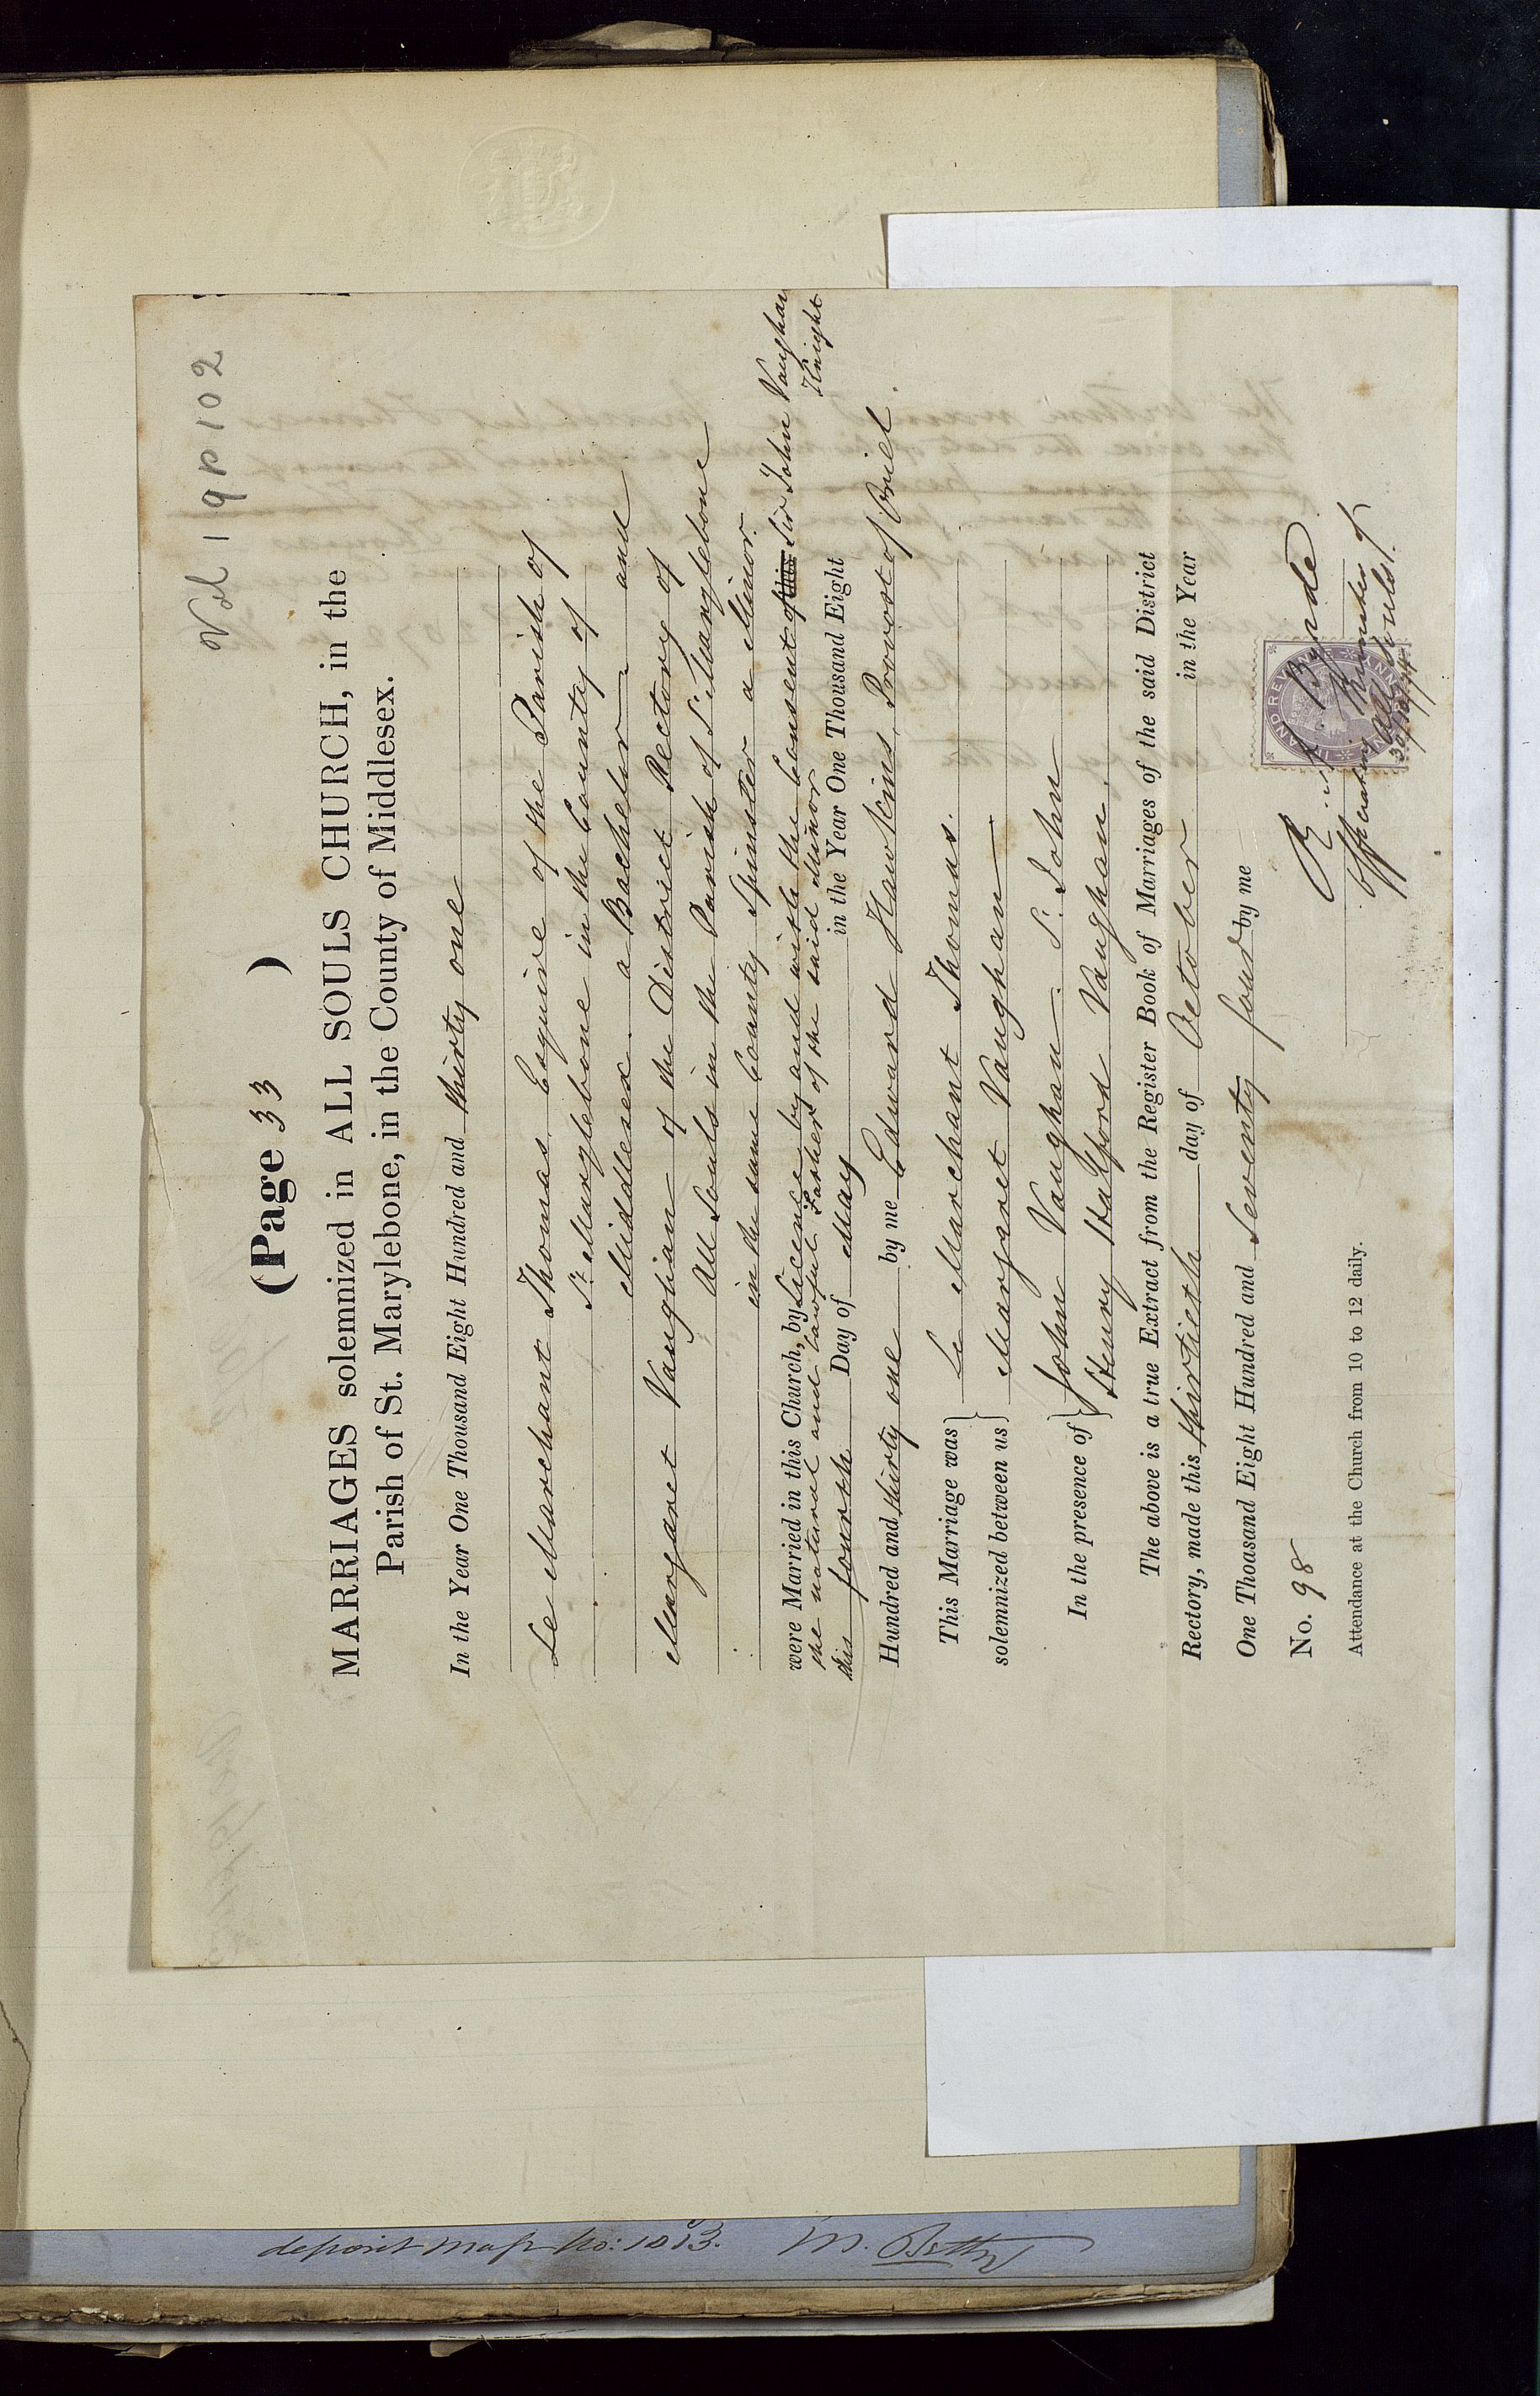 Vol 19 p 102
(Page 33)
MARRIAGES solemnized in ALL SOULS CHURCH, in the
Parish of St. Marylebone, in the County of Middlesex.
In the Year One Thousand Eight Hundred and thirty one
Le Marchant Thomas, Esquire of the Parish of
St. Marylebone in the County of
Middlesex. a Bachelor and
Margaret Vaughan of the District Rectory of
All Souls in the Parish of St. Marylebone
in the same County Spinster a Minor.
were Married in this Church, by Licence by and with the Consent of this Sir John Vaughan
Knight
the natural and lawful Father of the said Minor
this fourth Day of May in the Year One Thousand Eight
Hundred and thirty one by me Edward Hawkins, Provost of Oriel.
This Marriage was } Le Marchant Thomas.
solemnized between us } Margaret Vaughan
In the presence of } John Vaughan. St. John
Henry Halford Vaughan.
The above is a true Extract from the Register Book of Marriages of the said District
Rectory, made this thirtieth day of October in the Year
One Thousand Eight Hundred and Seventy four by me
No. 98
R
Officiating Minister of
All Souls
INLAND REVENUE
30/10/74
Attendance at the Church from 10 to 12 daily.
deposit Map No: 1013.